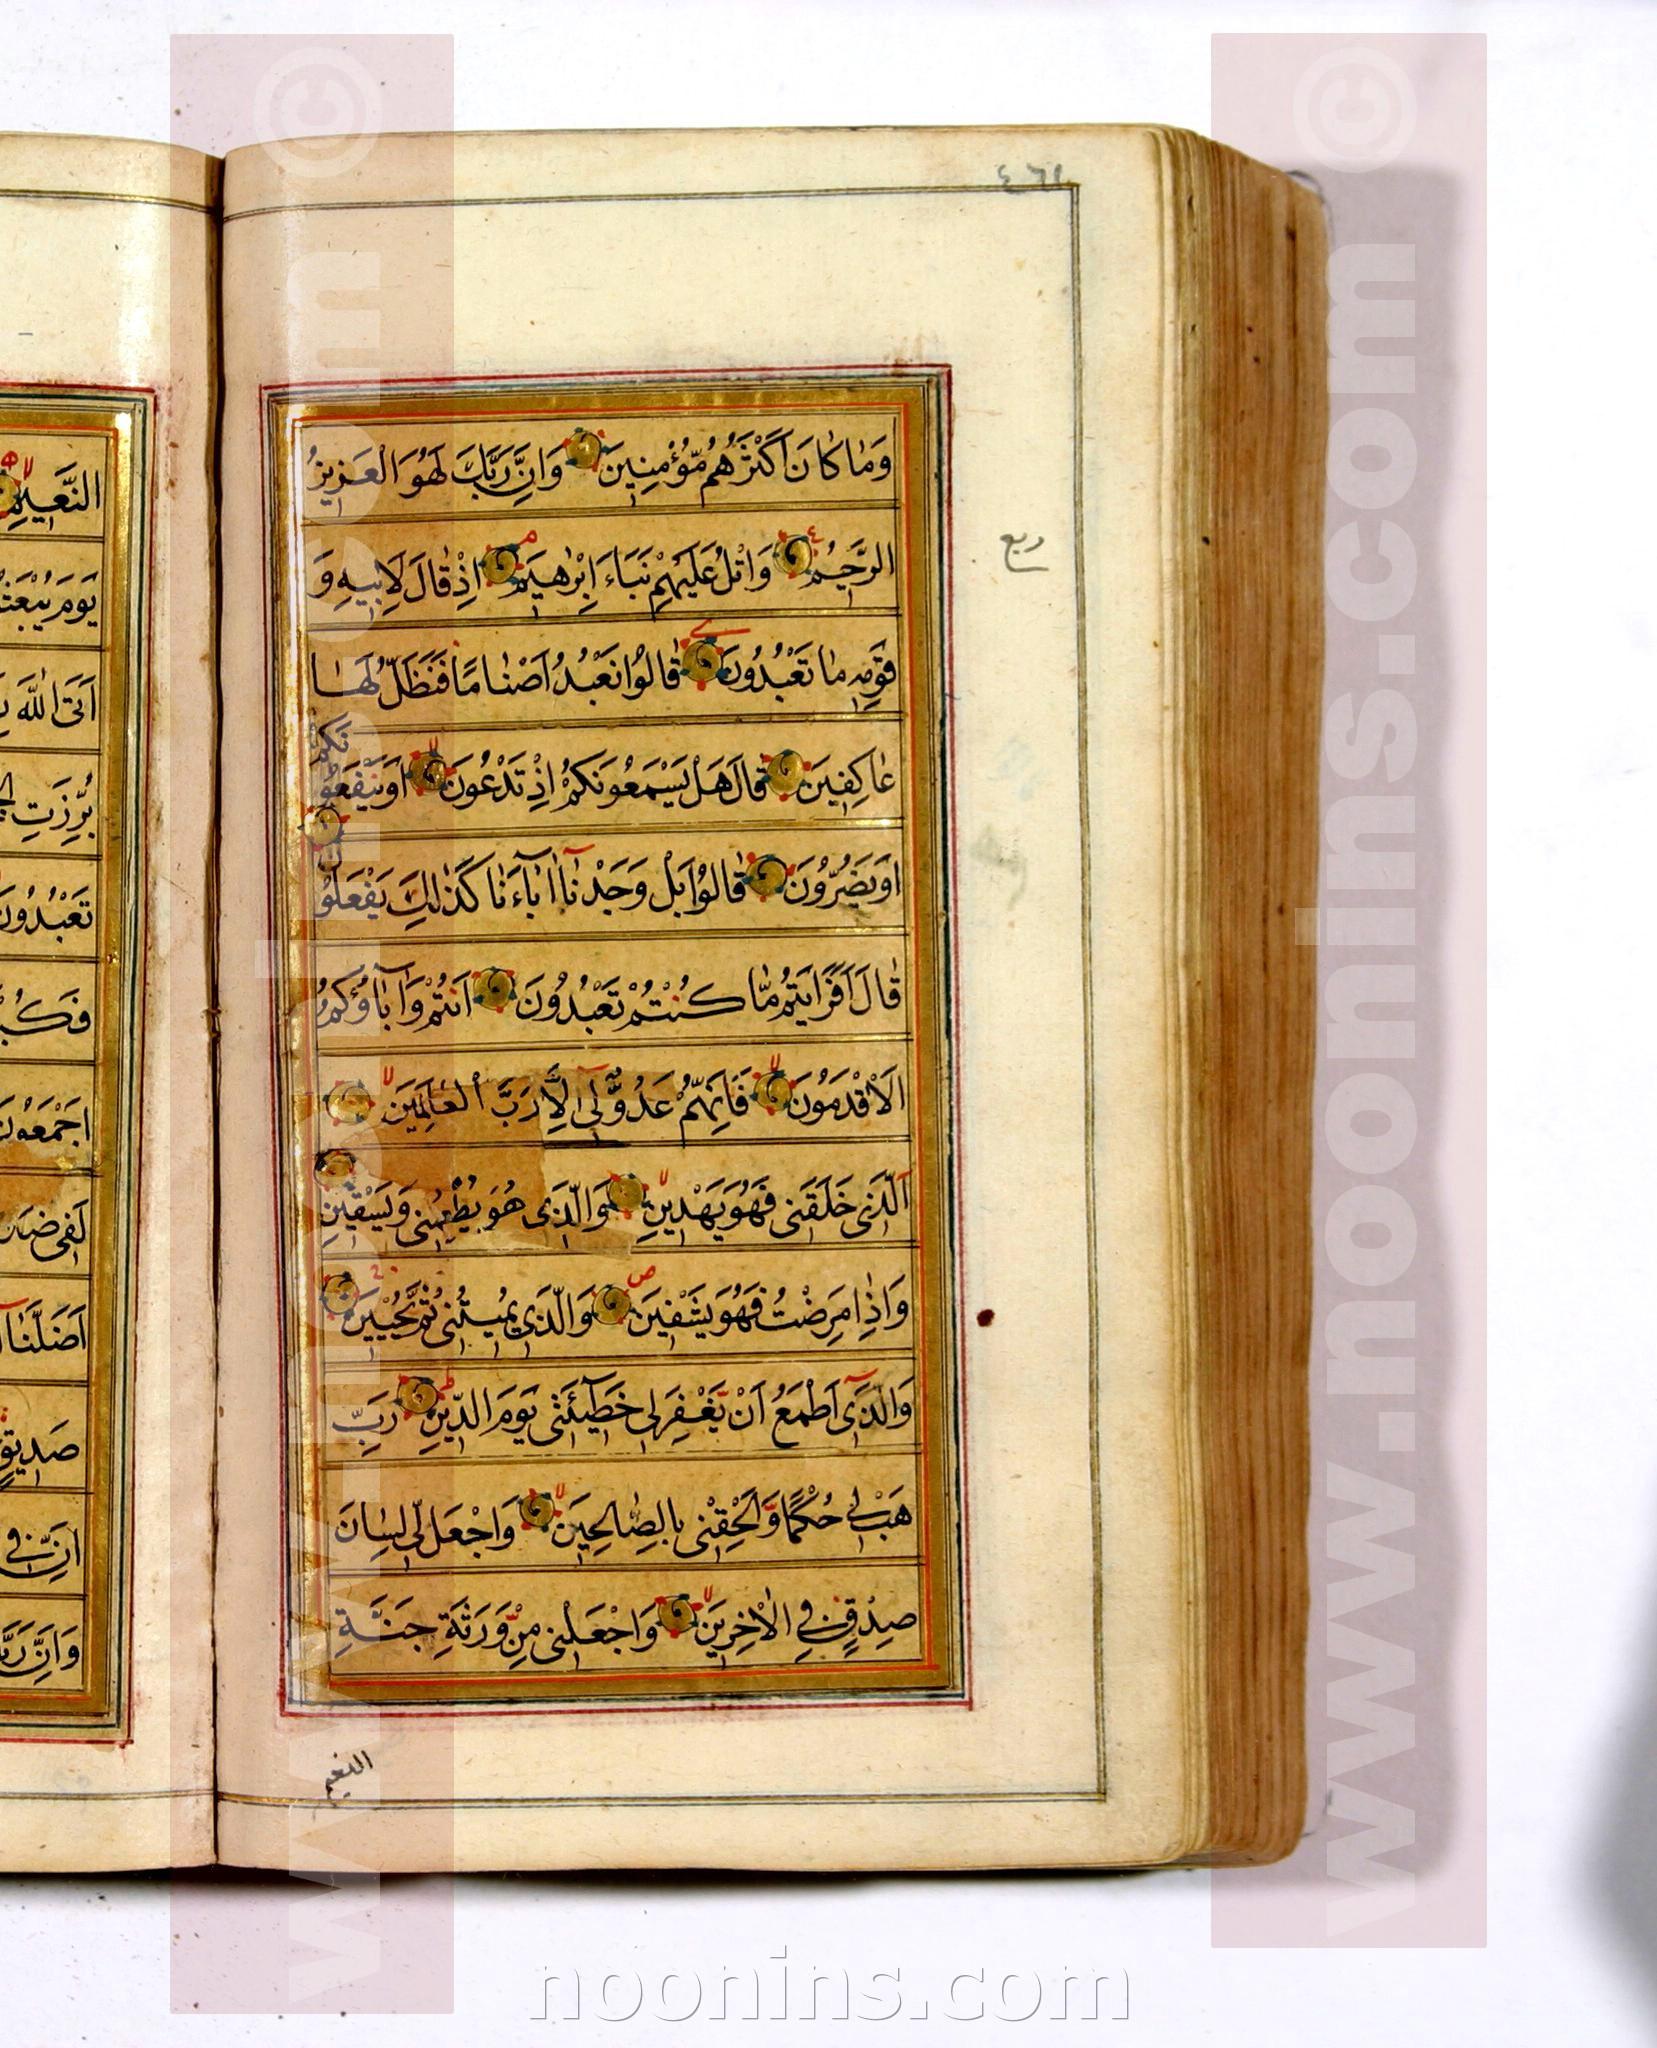 ٤٦١
وَمٰا كٰانَ اَكْثَرُهُمْ مُؤْمِنِينَ وَاِنَّ رَبَّكَ لَهُوَ الْعَزِيزُ
الرَّحِيمُ وَاتْلُ عَلَيْهِمْ نَبَاَءَ اِبْرٰهِيمَ اِذْ قٰالَ لِاَبِيهِ وَ
ربع
قَوْمِهِ مٰا تَعْبُدُونَ قٰالُوا نَعْبُدُ اَصْنٰامًا فَنَظَلُّ لَهٰا
عٰاكِفِينَ قٰالَ هَلْ يَسْمَعُونَكُمْ اِذْ تَدْعُونَ اَوْ يَنْفَعُونَكُمْ
اَوْ يَضُرُّونَ قٰالُوا بَلْ وَجَدْنٰا اٰبٰاءَنٰا كَذٰلِكَ يَفْعَلُونَ
قٰالَ اَفَرَاَيْتُمْ مٰا كُنْتُمْ تَعْبُدُونَ اَنْتُمْ وَاٰبٰاؤُكُمُ
الْاَقْدَمُونَ فَاِنَّهُمْ عَدُوٌّ لِي اِلَّا رَبَّ الْعٰالَمِينَ
اَلَّذِي خَلَقَنِي فَهُوَ يَهْدِينِ وَالَّذِي هُوَ يُطْعِمُنِي وَيَسْقِينِ
وَاِذٰا مَرِضْتُ فَهُوَ يَشْفِينِ وَالَّذِي يُمِيتُنِي ثُمَّ يُحْيِينِ
وَالَّذِي اَطْمَعُ اَنْ يَغْفِرَ لِي خَطِيئَتِي يَوْمَ الدِّينِ رَبِّ
هَبْ لِي حُكْمًا وَاَلْحِقْنِي بِالصّٰالِحِينَ وَاجْعَلْ لِي لِسٰانَ
صِدْقٍ فِي الْاٰخِرِينَ وَاجْعَلْنِي مِنْ وَرَثَةِ جَنَّةِ
النعيم
النَّعِيمِ
يَوْمَ يُبْعَثُ
اَتَى اللّٰهَ
بُرِّزَتِ
تَعْبُدُونَ
اَجْمَعُونَ
لَفِي
اَضَلَّنٰا
صَدِيقٍ
اِنَّ فِي
وَاِنَّ
www.noonins.com ©
www.noonins.com ©
noonins.com